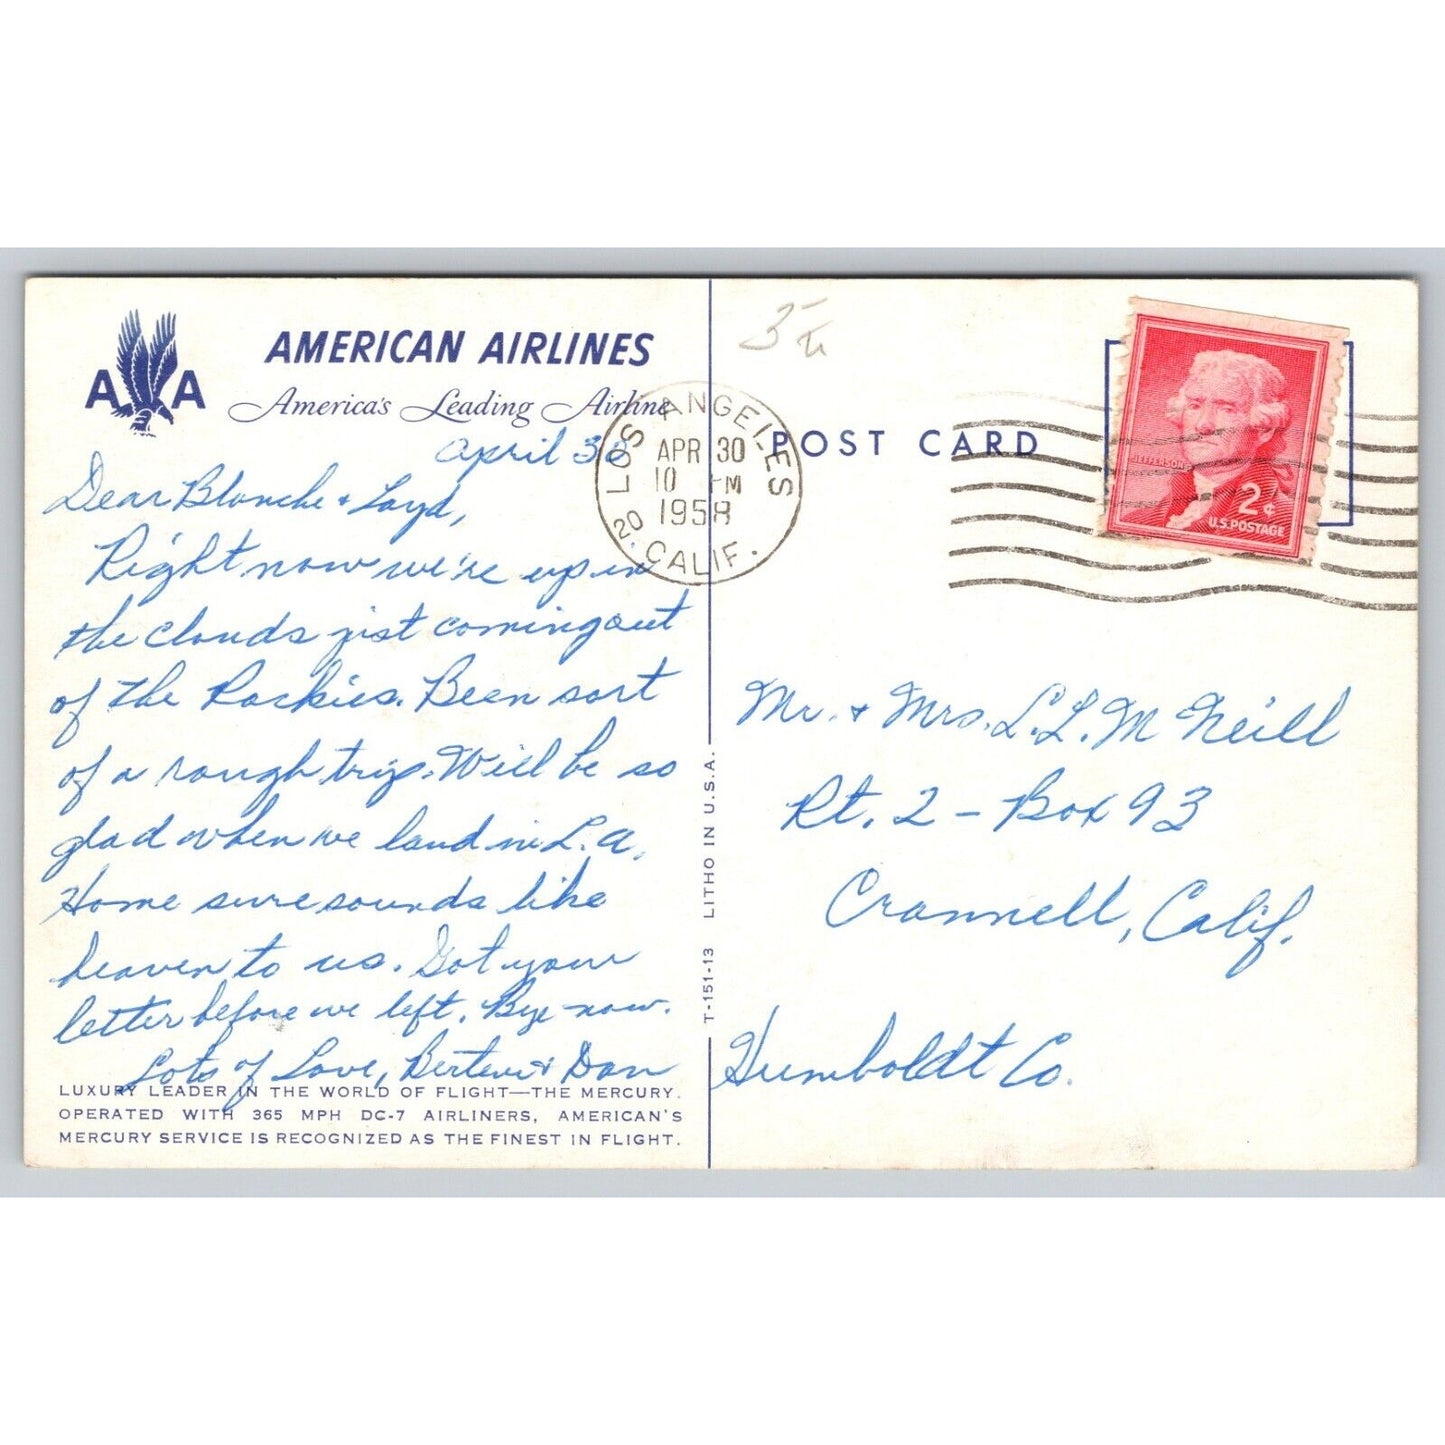 AMERICAN AIRLINES
A A
America's Leading Airline
April 30
Dear Blanche & Loyd,
Right now we're up in
the clouds jist coming out
of the Rockies. Been sort
of a rough trip. Will be so
glad when we land in L.A.
Home sure sounds like
heaven to us. Got your
letter before we left. Bye-now.
Lots of Love, & Dan
LUXURY LEADER IN THE WORLD OF FLIGHT—THE MERCURY.
OPERATED WITH 365 MPH DC-7 AIRLINERS, AMERICAN'S
MERCURY SERVICE IS RECOGNIZED AS THE FINEST IN FLIGHT.
T-151-13 LITHO IN U.S.A.
LOS ANGELES
APR 30
10 PM
1958
20. CALIF.
POST CARD
JEFFERSON
2¢
U.S. POSTAGE
Mr. & Mrs. L.L. McNeill
Rt. 2 - Box 93
Crannell, Calif.
Humboldt Co.